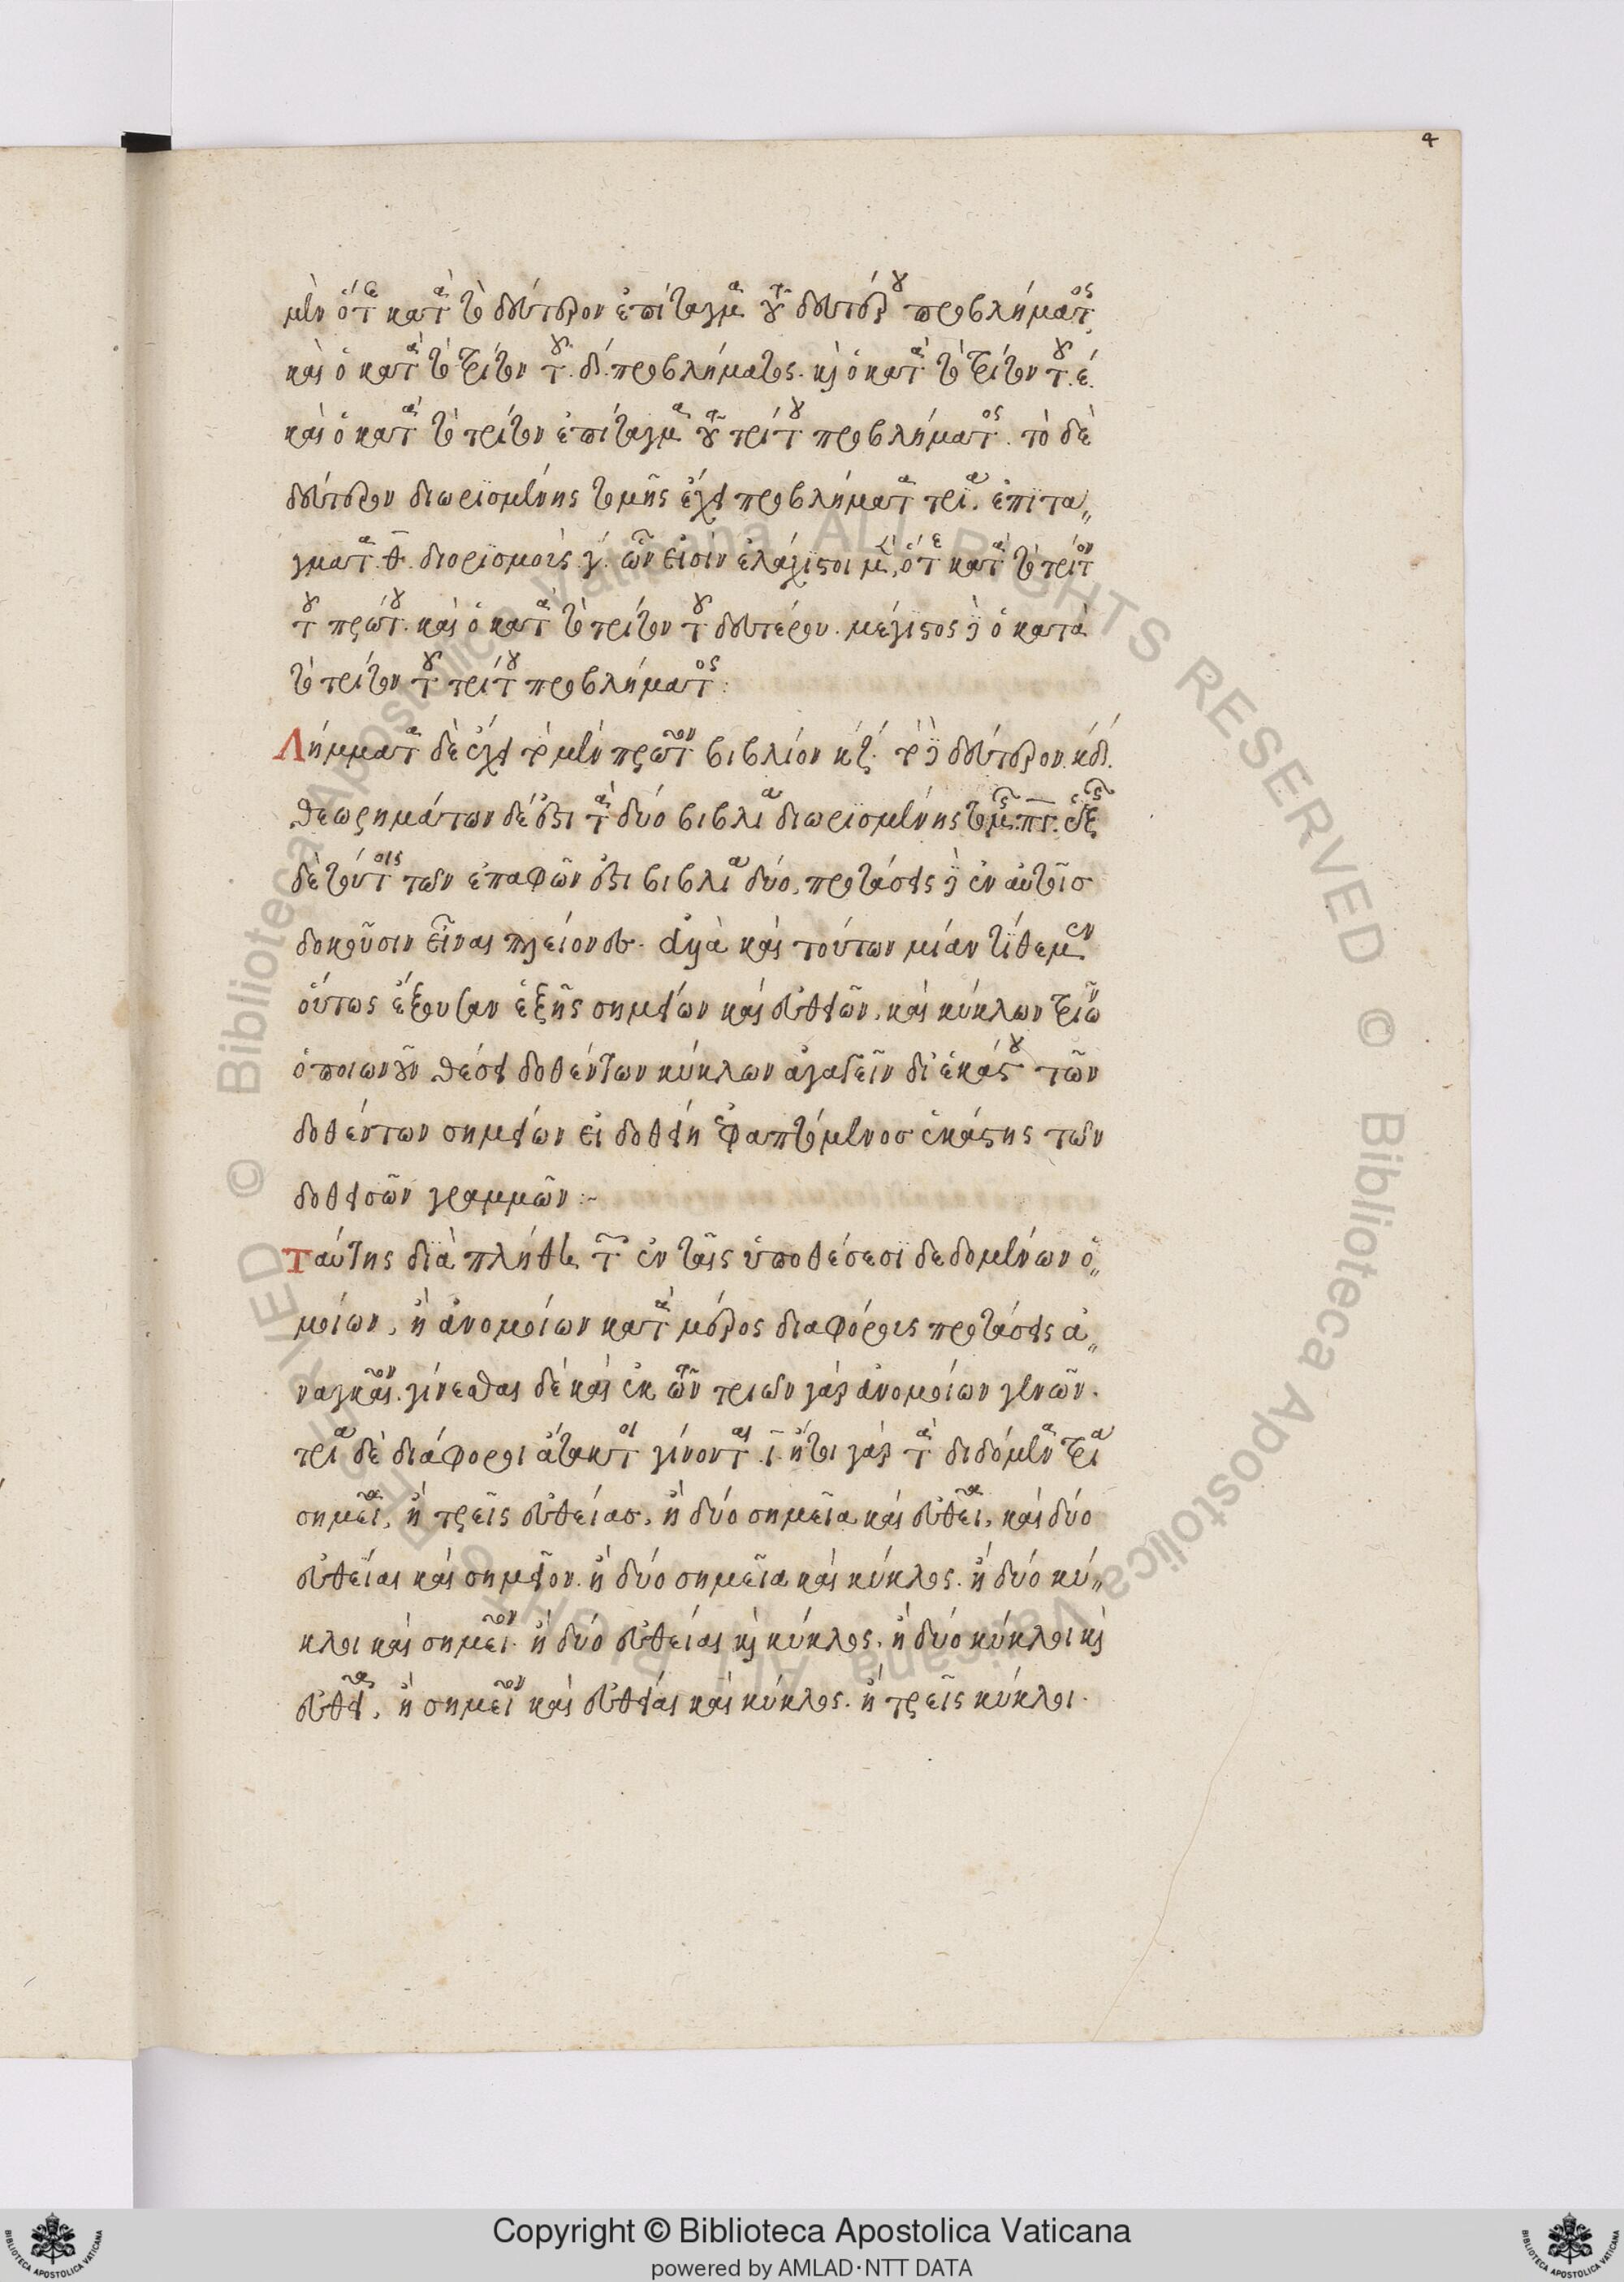 4
μὲν ὅτε κατὰ τὸ δεύτερον ἐπίταγμα τοῦ δευτέρου προβλήματος
καὶ ὁ κατὰ τὸ τρίτον τοῦ δ΄. προβλήματος. καὶ ὁ κατὰ τὸ τρίτον τοῦ ἕ.
καὶ ὁ κατὰ τὸ τρίτον ἐπίταγμα τοῦ τρίτου προβλήματος. τὸ δὲ
δεύτερον διωρισμένης τομῆς ἔχει προβλήματα τρία. ἐπιτα„
γματα θ. διορισμοὺς γ΄. ὧν εἰσὶν ἐλάχιστοι μὲν, ὅτε κατὰ τὸ τρίτον
τοῦ πρώτου. καὶ ὁ κατὰ τὸ τρίτον τοῦ δευτέρου. μέγιστος δὲ ὁ κατὰ
τὸ τρίτον τοῦ τρίτου προβλήματος:
Λήμματα δὲ ἔχει τὸ μὲν πρῶτον βιβλίον κζ΄. τὸ δὲ δεύτερον. κδ΄.
θεωρημάτων δέ ἐστι τὰ δύο βιβλία διωρισμένης τομῆς. πγ. ἑξῆς
δὲ τούτοις τῶν ἐπαφῶν ἐστι βιβλία δύο, προτάσεις δὲ ἐν αὐτοῖσ
δοκοῦσιν εἶναι πλείονες. ἀλλὰ καὶ τούτων μίαν τίθεμεν
οὕτως ἔχουσαν ἑξῆς σημείων καὶ εὐθειῶν, καὶ κύκλων τριῶν
ὁποιωνοῦν θέσει δοθέντων κύκλων ἀγαγεῖν δι ἑκάστου τῶν
δοθέντων σημείων εἰ δοθείη ἐφαπτόμενοσ ἑκάστης τῶν
δοθεισῶν γραμμῶν:~
Ταύτης διὰ πλήθη τῶν ἐν ταῖς ὑποθέσεσι δεδομένων ὁ„
μοίων, ἢ ἀνομοίων κατὰ μέρος διαφόροις προτάσεις ἀ„
ναγκαῖον. γίνεσθαι δὲ καὶ ἐκ τῶν τριῶν γὰρ ἀνομοίων γενῶν.
τρία δὲ διάφοροι ἄτακτοι γίνονται ι. ἤτοι γὰρ τὰ διδόμενα τρία
σημεῖα, ἢ τρεῖς εὐθείασ, ἢ δύο σημεῖα καὶ εὐθεῖα, καὶ δύο
εὐθεῖαι καὶ σημεῖον. ἢ δύο σημεῖα καὶ κύκλος. ἢ δύο κύ„
κλοι καὶ σημεῖον. ἢ δύο εὐθείαι καὶ κύκλος, ἢ δύο κύκλοι καὶ
εὐθεῖα, ἢ σημεῖον καὶ εὐθείαι καὶ κύκλος. ἢ τρεῖς κύκλοι.
Copyright © Biblioteca Apostolica Vaticana
powered by AMLAD·NTT DATA